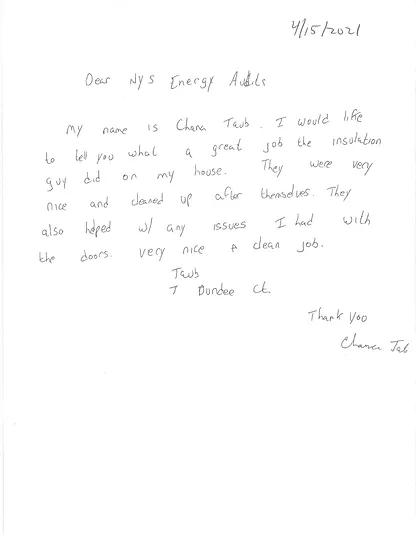 4/15/2021
Dear NYS Energy Audits
My name is Chana Taub. I would like
to tell you what a great job the insulation
guy did on my house. They were very
nice and cleaned up after themselves. They
also helped w/ any issues I had with
the doors. very nice & clean job.
Taub
7 Dundee Ct.
Thank you
Chana Tab